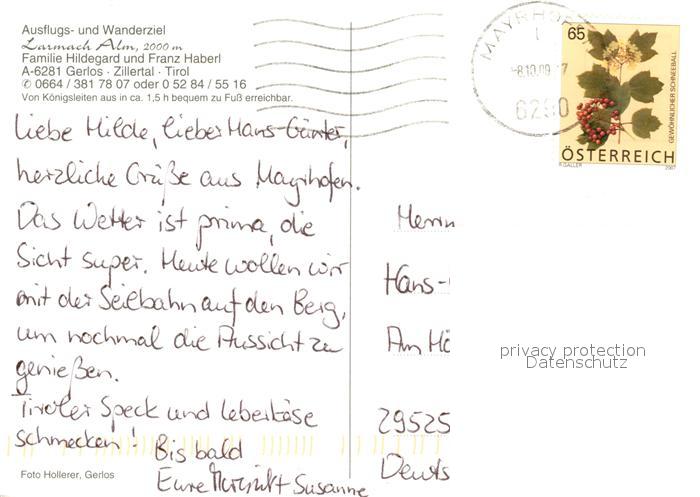 Ausflugs- und Wanderziel
Larmach Alm, 2000 m
Familie Hildegard und Franz Haberl
A-6281 Gerlos · Zillertal · Tirol
✆ 0664 / 381 78 07 oder 0 52 84 / 55 16
Von Königsleiten aus in ca. 1,5 h bequem zu Fuß erreichbar.
Liebe Hilde, lieber Hans-Günter,
herzliche Grüße aus Mayrhofen.
Das Wetter ist prima, die
Sicht super. Heute wollen wir
mit der Seilbahn auf den Berg,
um nochmal die Aussicht zu
genießen.
Tiroler Speck und Leberkäse
schmecken!
Bis bald
Eure Susanne
Foto Hollerer, Gerlos
MAYRHOFEN
1
-8.10.09
6290
65
GEWÖHNLICHER SCHNEEBALL
ÖSTERREICH
B.GALLER 2007
Herrn
Hans-
Am Hö
29525
Deuts
privacy protection
Datenschutz